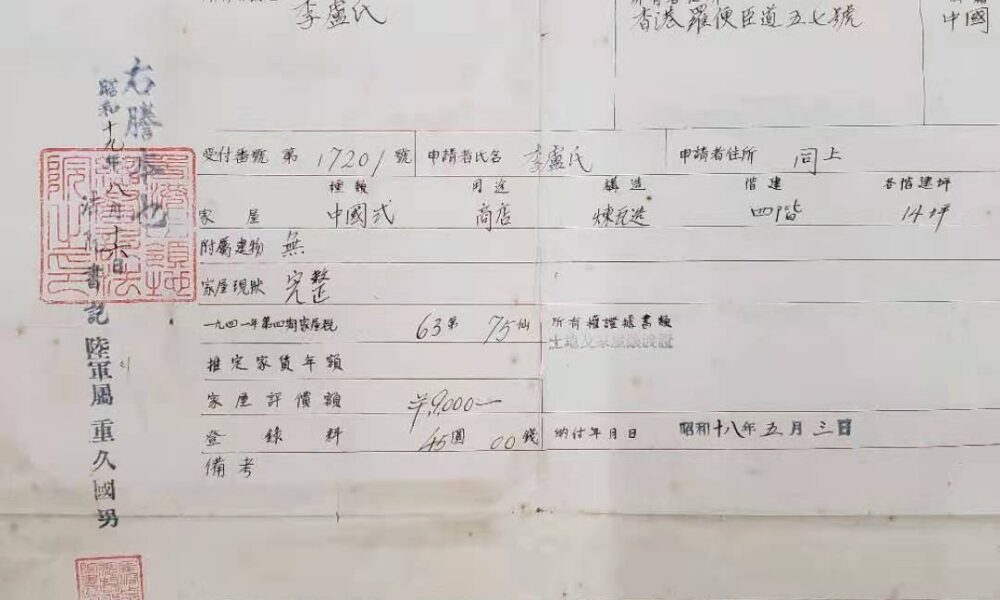 李盧氏
香港羅便臣道五七號
中國
受付番號 第 17201 號 申請者氏名 李盧氏 申請者住所 同上
種類 用途 構造 階建 各階建坪
家屋 中國式 商店 煉瓦造 四階 14坪
附屬建物 無
家屋現狀 完整
一九四一年第四期家屋稅 63弗 75仙 所有權證據書類
土地及家屋讓渡證
推定家賃年額
家屋評價額 ¥9,000—
登錄料 45圓 00錢 納付年月日 昭和十八年五月三日
備考
右謄本也
昭和十九年八月十六日
書記 陸軍屬 重久國男